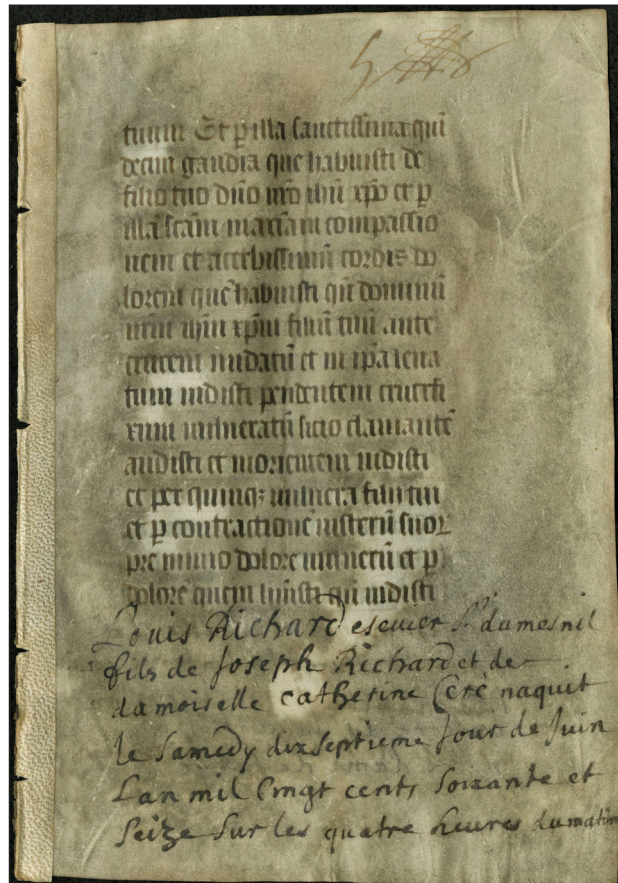 tuum Et ꝑ illa sanctissima quī
decim gaudia que habuisti de
filio tuo dn̄o nr̄o ihū xp̄o et ꝑ
illā sc̄am maximam compassio
nem et acerbissimū cordis do
lorem quē habuisti qn̄ dominū
nr̄m ihm̄ xp̄m filiū tuū ante
crucem nudatū et in ip̄a leua
tum uidisti pendentem crucifi
xum uulneratū sicio clamantē
audisti et morientem uidisti
et per quinqꝫ uulnera filii tui
et ꝑ contractionē uisterū suoꝝ
pre nimio dolore uulnerū et ꝑ
dolorē quem huīsti qn̄ uidisti
Louis Richard escuier Sr dumesnil
fils de Joseph Richard et de
damoiselle catherine Ceré naquit
le Samedy dixseptieme Jour de Juin
Lan mil Cinqt cents Soixante et
Seize Sur les quatre heures dumatin